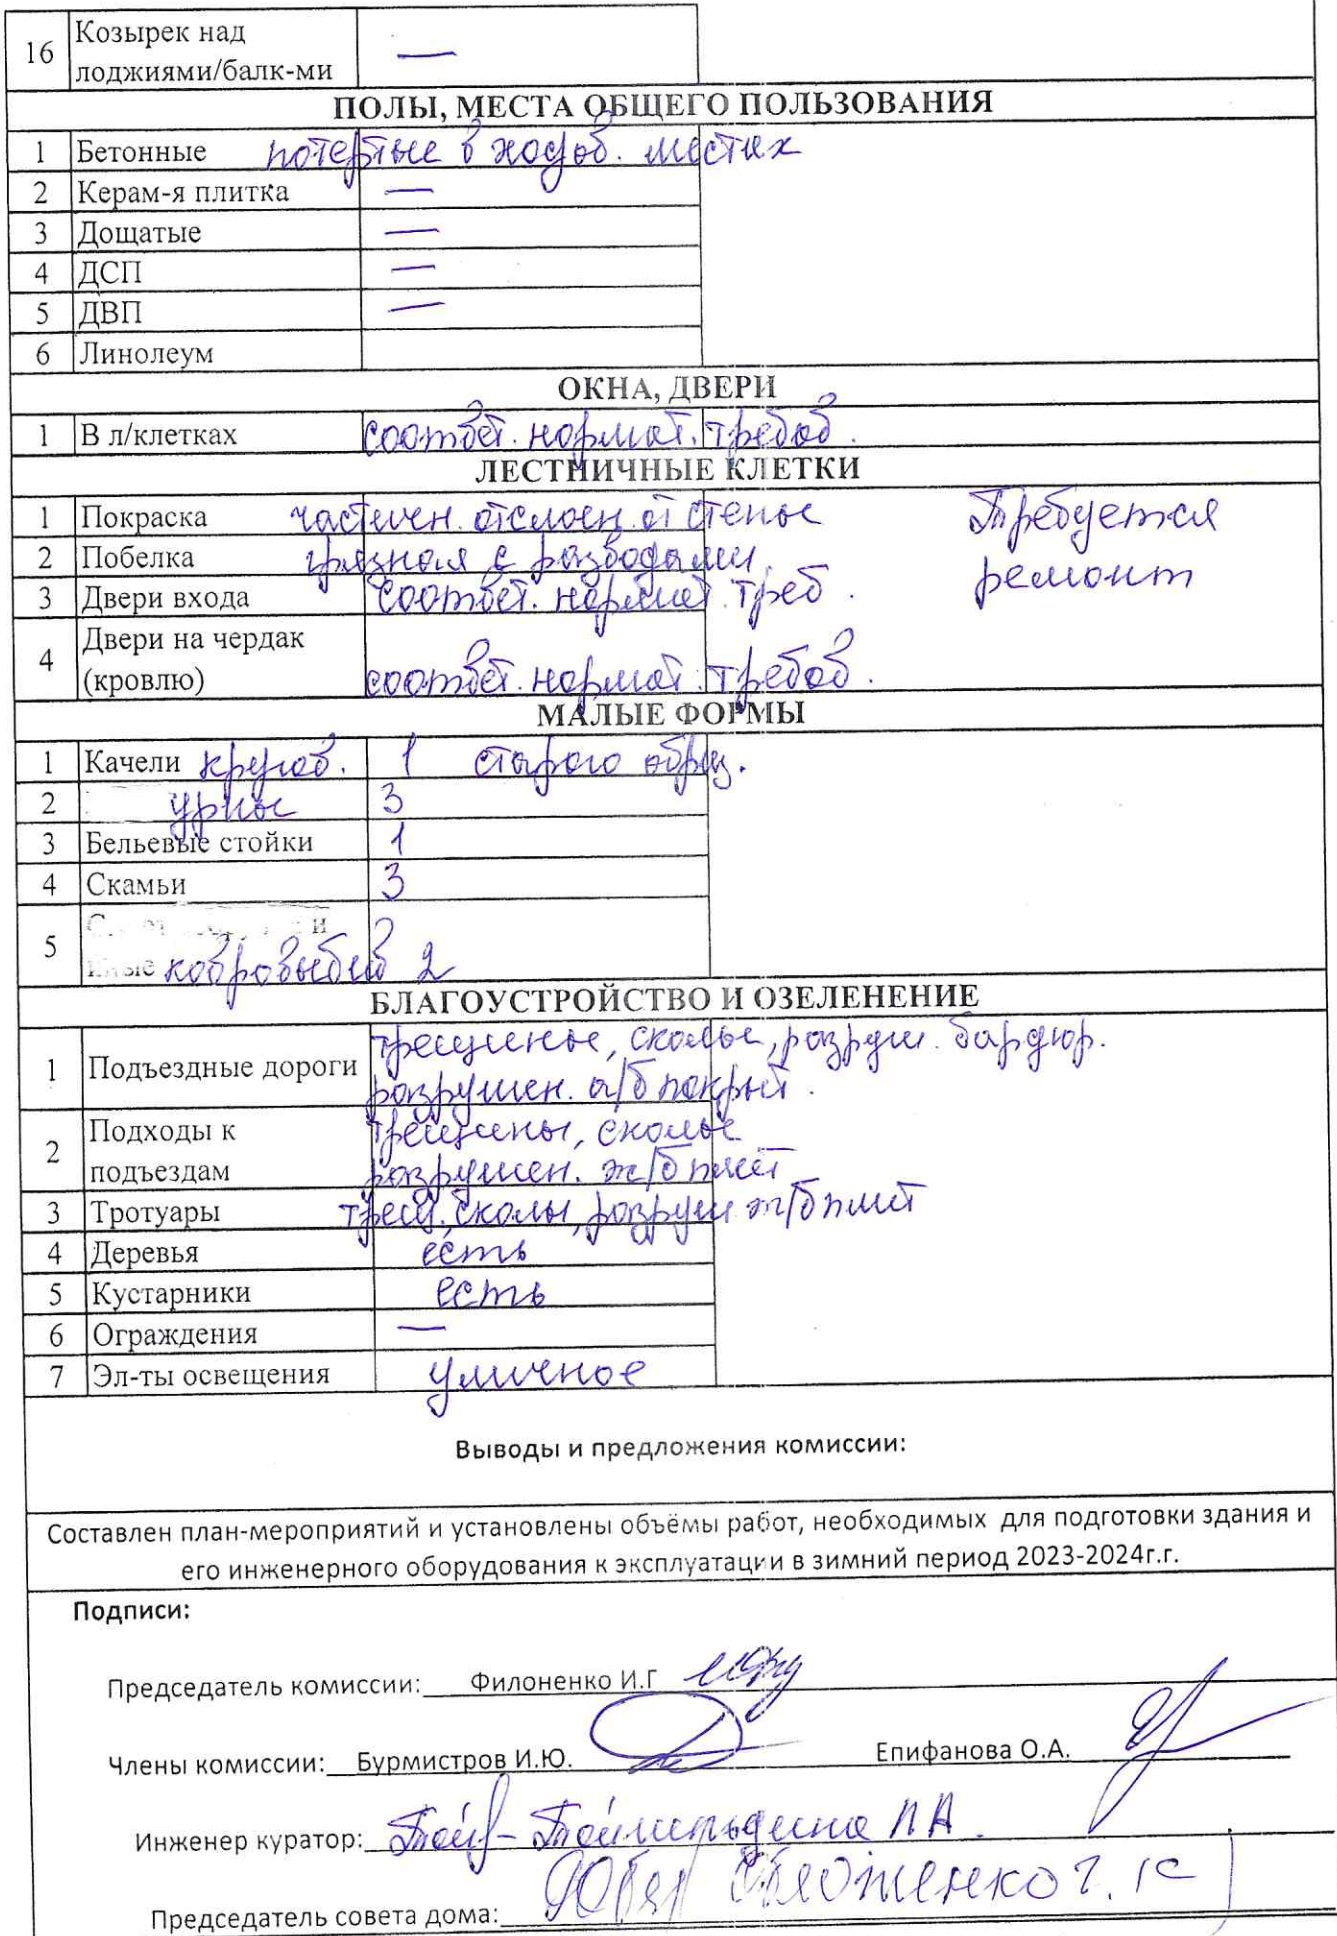 16 Козырек над
лоджиями/балк-ми —
ПОЛЫ, МЕСТА ОБЩЕГО ПОЛЬЗОВАНИЯ
1 Бетонные потертые в ходов. местах
2 Керам-я плитка —
3 Дощатые —
4 ДСП —
5 ДВП —
6 Линолеум
ОКНА, ДВЕРИ
1 В л/клетках соответ. нормат. требов.
ЛЕСТНИЧНЫЕ КЛЕТКИ
1 Покраска частичн. отслоен. от стены Требуется
2 Побелка грязная с разводами. ремонт
3 Двери входа соответ. нормат. треб.
4 Двери на чердак
(кровлю) соответ. нормат. требов.
МАЛЫЕ ФОРМЫ
1 Качели кругов. 1 старого образ.
2 урны 3
3 Бельевые стойки 1
4 Скамьи 3
5 ковровыбив 2
БЛАГОУСТРОЙСТВО И ОЗЕЛЕНЕНИЕ
1 Подъездные дороги трещины, сколы, разруш. бардюр.
разрушен. а/б покрыт.
2 Подходы к трещины, сколы
подъездам разрушен. ж/б плит
3 Тротуары трещ. сколы, разруш ж/б плит
4 Деревья есть
5 Кустарники есть
6 Ограждения —
7 Эл-ты освещения уличное
Выводы и предложения комиссии:
Составлен план-мероприятий и установлены объёмы работ, необходимых для подготовки здания и
его инженерного оборудования к эксплуатации в зимний период 2023-2024г.г.
Подписи:
Председатель комиссии: Филоненко И.Г
Члены комиссии: Бурмистров И.Ю. Епифанова О.А.
Инженер куратор:
Председатель совета дома: